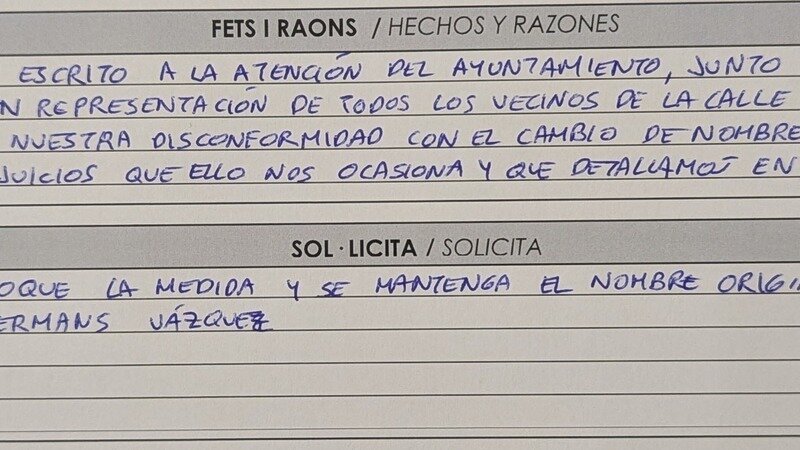 FETS I RAONS / HECHOS Y RAZONES
ESCRITO A LA ATENCIÓN DEL AYUNTAMIENTO, JUNTO
N REPRESENTACIÓN DE TODOS LOS VECINOS DE LA CALLE
NUESTRA DISCONFORMIDAD CON EL CAMBIO DE NOMBRE
JUICIOS QUE ELLO NOS OCASIONA Y QUE DETALLAMOS EN
SOL·LICITA / SOLICITA
OQUE LA MEDIDA Y SE MANTENGA EL NOMBRE ORIGI
ERMANS VÁZQUEZ